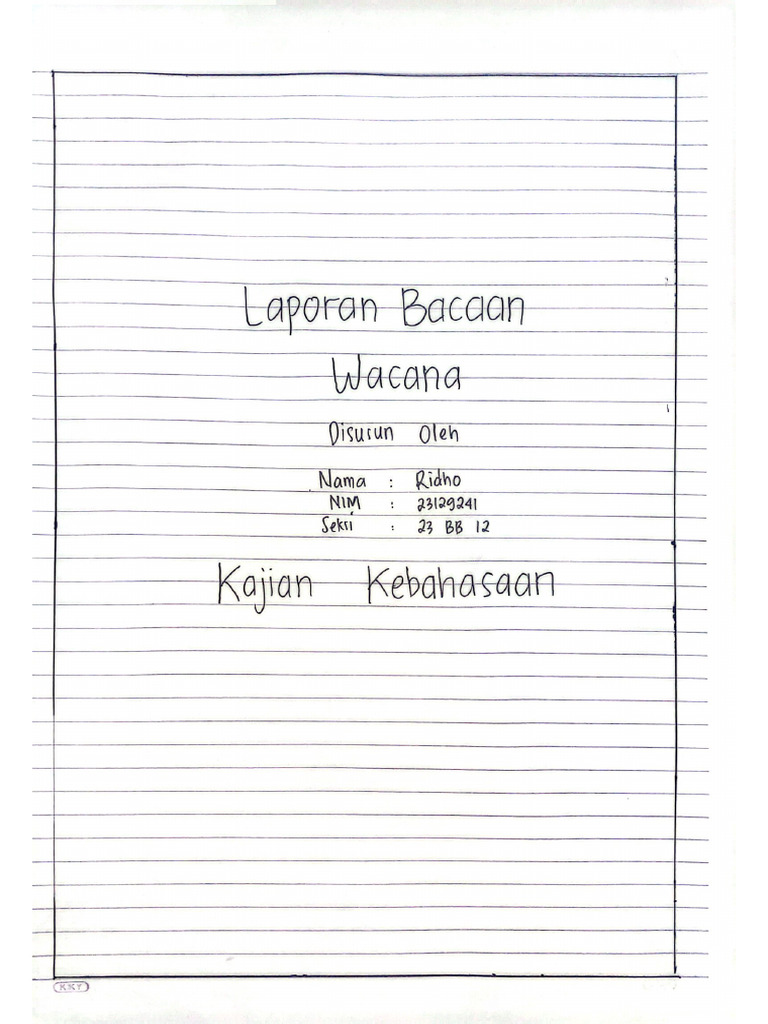 Laporan Bacaan
Wacana
Disusun Oleh
Nama : Ridho
NIM : 23129241
Seksi : 23 BB 12
Kajian Kebahasaan
KKY